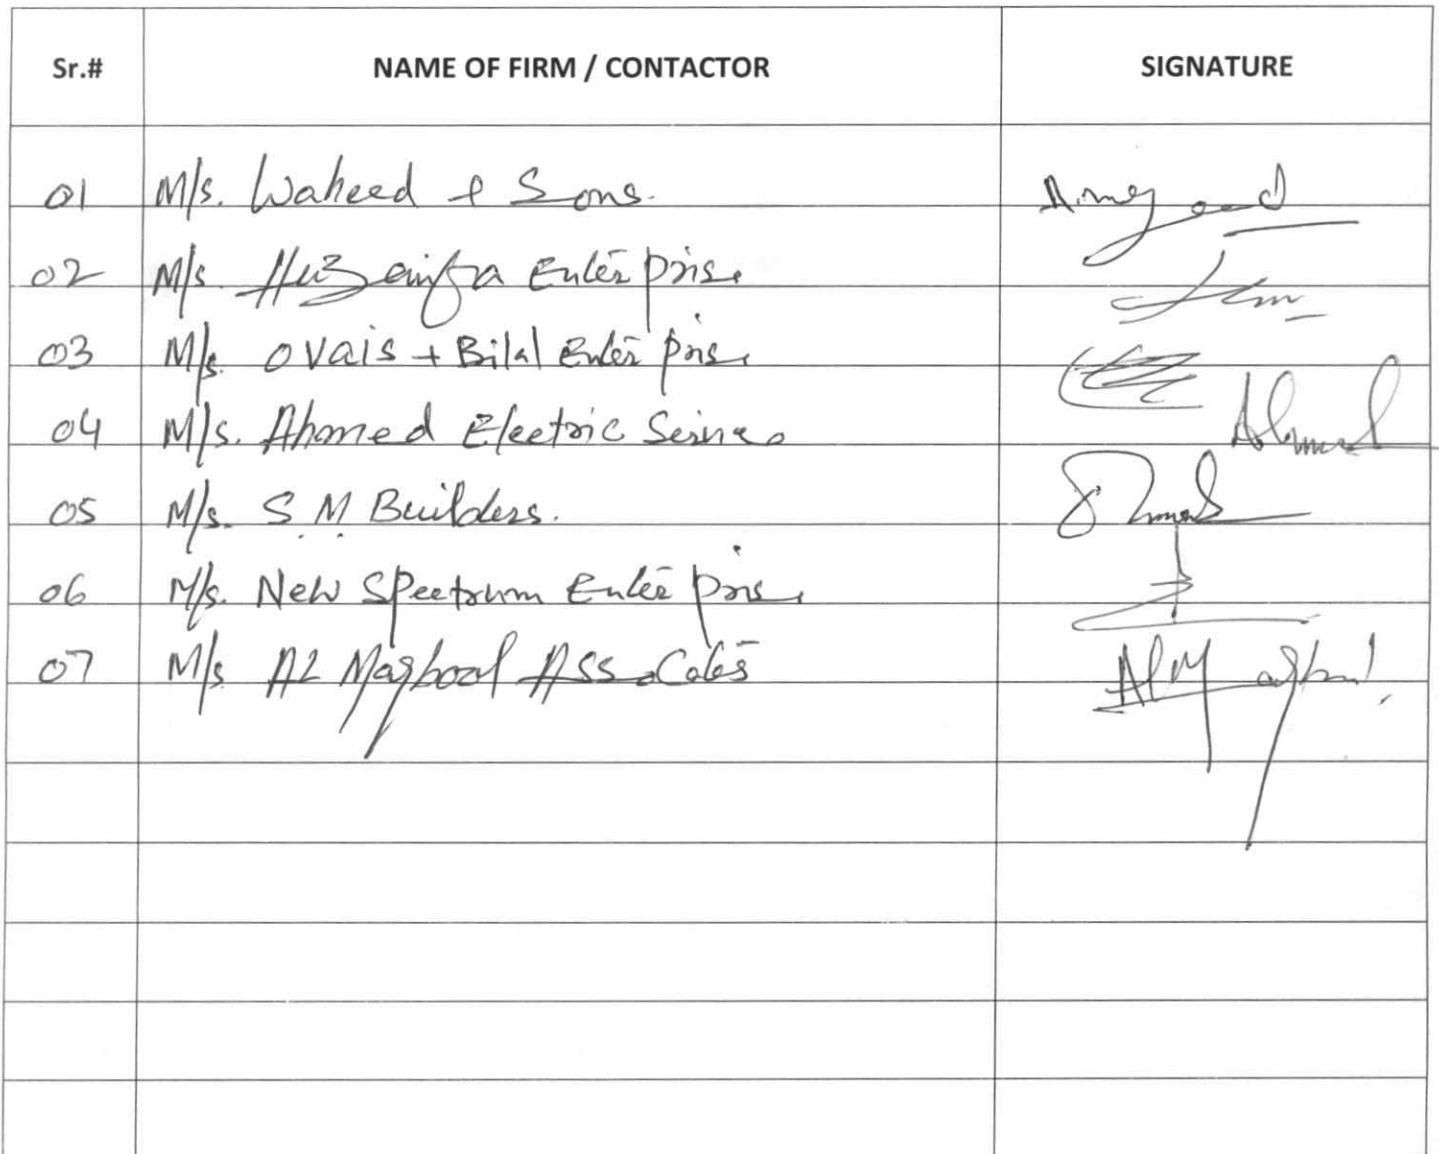 Sr.# NAME OF FIRM / CONTACTOR SIGNATURE
01 M/s. Waheed + Sons.
02 M/s. Huzaifa Enterprise
03 M/s. Ovais + Bilal Enterprise
04 M/s. Ahmed Electric Service Ahmed
05 M/s. S.M Builders.
06 M/s. New Spectrum Enterprise
07 M/s AL Maqbool Associates Al Maqbool